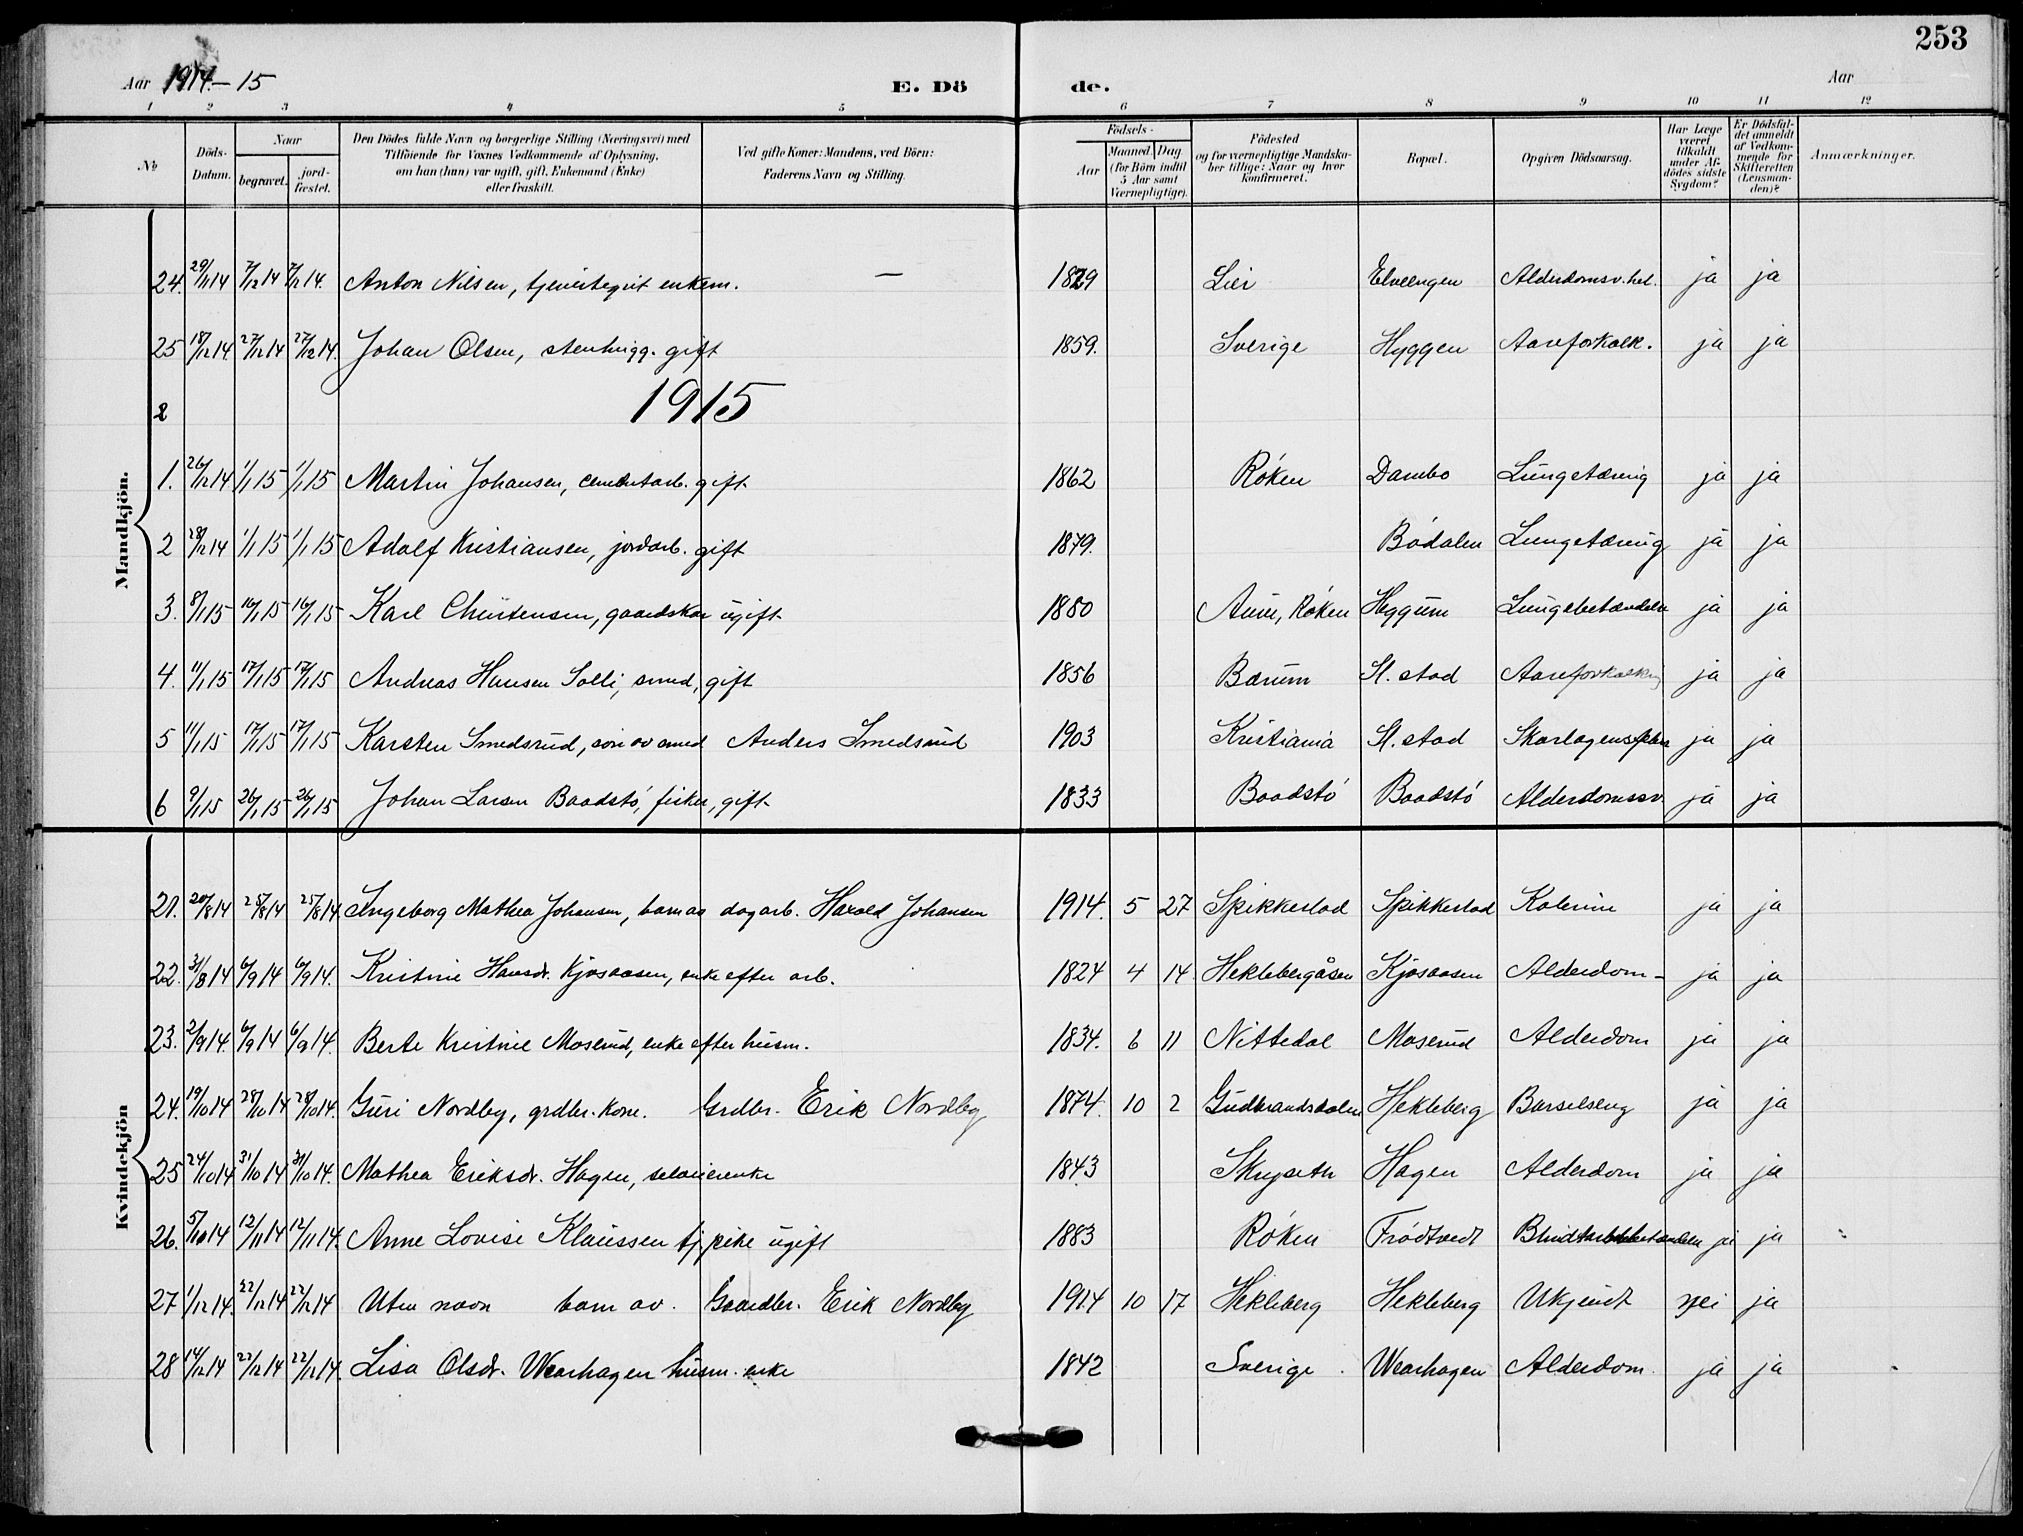 253
Aar 1914-15 E. Döde. Aar
1 2 3 4 5 6 7 8 9 10 11 12
No
Döds-Datum.
Naar
begravet. jordfæstet.
Den Dödes fulde Navn og borgerlige Stilling (Næringsvei) med
Tilföiende for Voxnes Vedkommende af Oplysning,
om han (hun) var ugift, gift, Enkemand (Enke)
eller fraskilt.
Ved gifte Koner: Mandens, ved Börn:
Faderens Navn og Stilling.
Födsels-
Aar Maaned. Dag.
(for Börn indtil
5 Aar samt
Værnepligtige).
Födested
og for værnepligtige Mandskaber tillige: Naar og hvor
konfirmeret.
Bopæl.
Opgiven Dödsaarsag.
Har Læge været tilkaldt under Afdödes sidste Sygdom?
Er Dödsfaldet anmeldt af Vedkommende for Skifteretten (Lensmanden)?
Anmærkninger.
Mandkjön.
24. 29/11 14 7/12 14 7/12 14. Anton Nilsen, enkem. — 1829 Lier Elveengen Alderdomsv.hel. ja ja
25 18/12 14 27/12 14 27/12 14. Johan Olsen, stenhugg. gift 1859. Sverige Hyggen Aareforkalk. ja ja
2 1915
1. 26/12 14 1/1 15 1/1 15 Martin Johansen, cementarb. gift 1862 Røken Dambo Lungetæring ja ja
2 28/12 14 1/1 15 1/1 15 Adolf Kristiansen, jordarb. gift 1879. Bødalen Lungetæring ja ja
3. 8/1 15 16/1 15 16/1 15 Karl Christensen, gaardskar ugift 1880 Aune, Røken Hyggum Lungebetændelse ja ja
4. 11/1 15 17/1 15 17/1 15 Andreas Hansen Solli, smed, gift 1856 Bærum Sl. stad Aareforkalking ja ja
5 11/1 15 17/1 15 17/1 15 Karsten Smedsrud, søn av smed Anders Smedsrud 1903 Kristiania Sl. stad Skarlagensfeber ja ja
6 9/1 15 26/1 15 26/1 15 Johan Larsen Baadstø, fisker, gift 1833 Baadstø Baadstø Alderdomssv. ja ja
Kvindekjön
21. 20/8 14 25/8 14 25/8 14. Ingeborg Mathea Johansen, barn av dagarb. Harald Johansen 1914. 5 27 Spikkestad Spikkestad Kolerine ja ja
22. 31/8 14 6/9 14 6/9 14. Kristine Hansdr. Kjøsaasen, enke efter arb. 1824 4 14 Heklebergåsen Kjøsaasen Alderdom- ja ja
23. 2/9 14. 6/9 14 6/9 14. Berte Kristine Moserud, enke efter husm. 1834. 6 11 Nittedal Moserud Alderdom ja ja
24. 19/10 14 28/10 14 28/10 14. Guri Nordby, grdbr. kone. Grdbr. Erik Nordby 1874. 10 2 Gudbrandsdalen Hekleberg Barselseng ja ja
25 24/10 14 31/10 14 31/10 14. Mathea Eriksdr. Hagen, 1843 Hagen Alderdom ja ja
26. 5/11 14 12/11 14 12/11 14. Anne Lovise Klaussen tj. pike ugift 1883 Røken Frødtvedt Blindtarmbetændelse ja ja
27 1/12 14. 22/12 14 22/12 14 Uten navn barn av. Gaardbr. Erik Nordby 1914 10 17 Hekleberg Hekleberg Ukjendt nei ja
28 14/12 14 22/12 14 22/12 14. Lisa Olsdr. Wearhagen husm. enke 1842 Sverige. Wearhagen Alderdom. ja ja